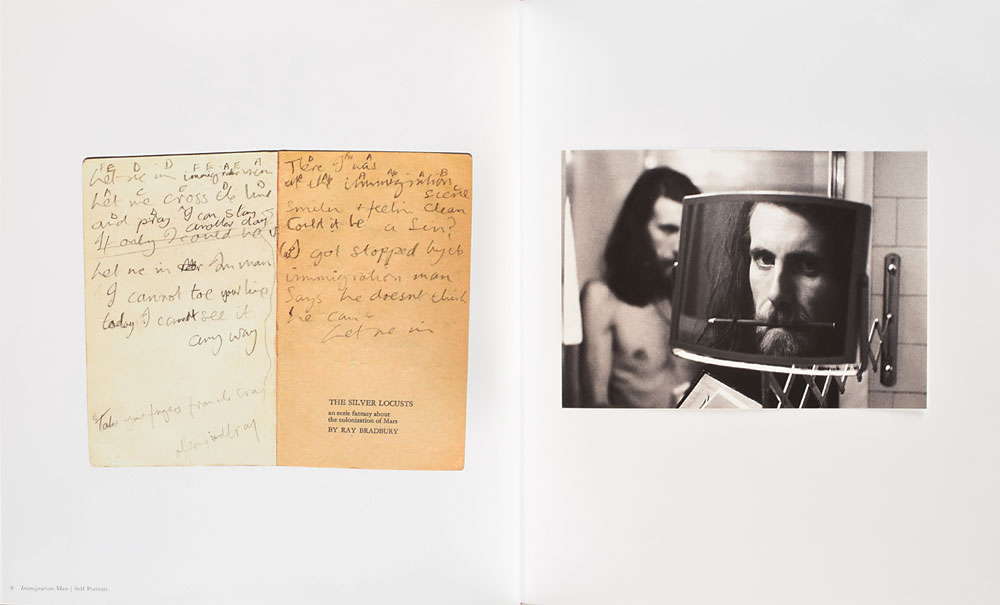 Let me in immigration man
Let me cross the line
and pray I can stay
another day
If only I could be
Let me in Imm man
I cannot toe your line
today I cannot see it
any way
Take your fingers from the tray
There I was
at the immigration
scene
Smilin + feelin clean
Could it be a Sin?
I got stopped by the
immigration man
Says he doesnt think
he can
Let me in
THE SILVER LOCUSTS
an eerie fantasy about
the colonization of Mars
BY RAY BRADBURY
Immigration Man | Self Portrait